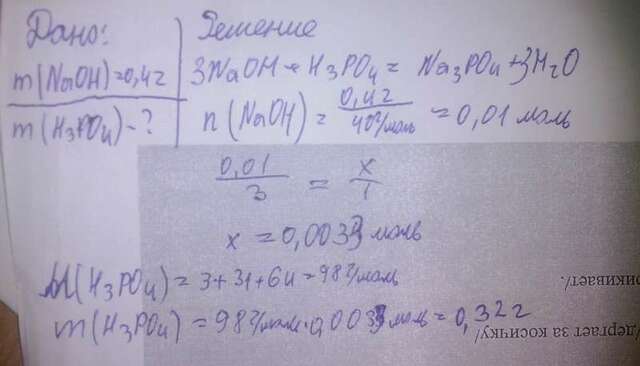 Дано:
m(NaOH)=0,4г
m(H₃PO₄)-?
Решение
3NaOH + H₃PO₄ = Na₃PO₄+3H₂O
n(NaOH) = 0,4г / 40г/моль = 0,01 моль
0,01/3 = x/1
x = 0,0033 моль
M(H₃PO₄) = 3+31+64=98г/моль
m(H₃PO₄) = 98г/моль·0,0033 моль = 0,32г
рикивает/.
/дергает за косичку/